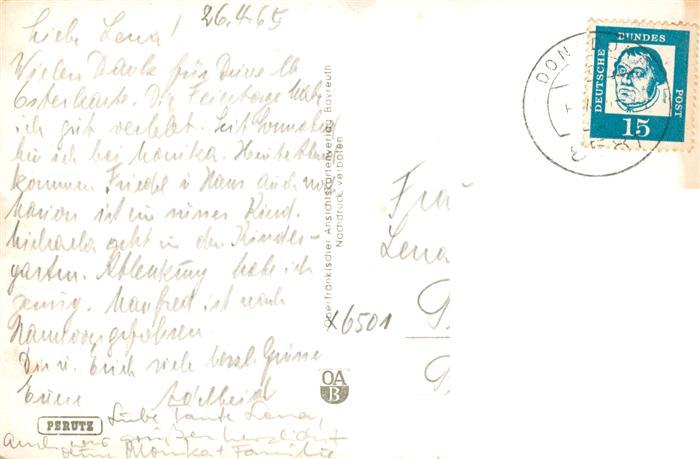 26.4.65
Liebe Lena!
Vielen Dank für Deine lb
Osterkarte. Die Feiertage habe
ich gut verlebt. Seit
bin ich bei Monika. Heute Abend
kommen Friedel u Hans auch
Marion ist ein süsses Kind.
Michaela geht in den Kinder-
garten. Ablenkung habe ich
genug. Manfred ist nach
Hannover gefahren.
Dir u. Euch viele herzl. Grüsse
Eure Adelheid
Liebe Tante Lena,
auch wir grüßen herzlichst
Deine Monika + Familie
PERUTZ
Oberfränkischer Ansichtskartenverlag Bayreuth
Nachdruck verboten
OA
B
Frau
Lena
x6501
DEUTSCHE BUNDES POST
15
DON